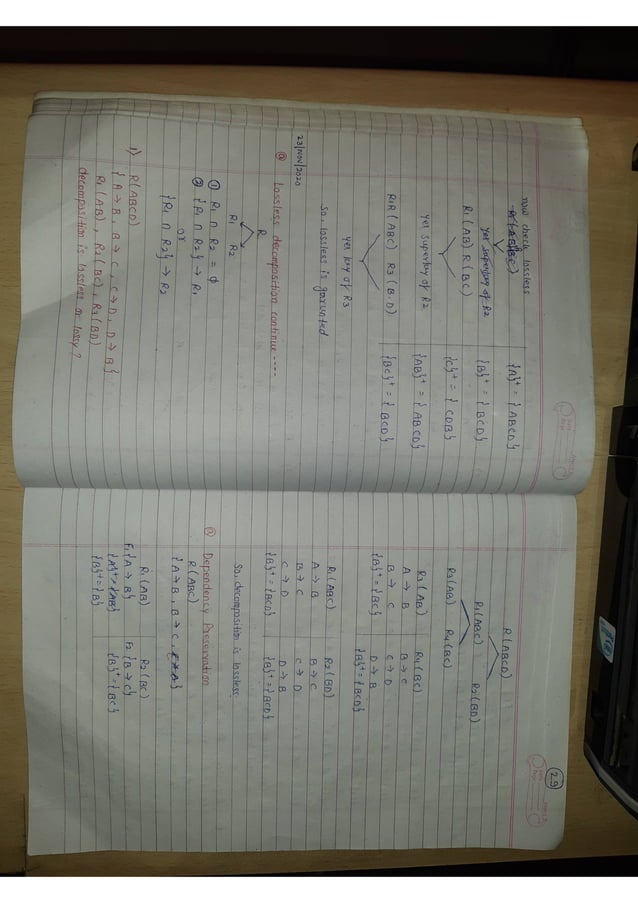 now check lossless
R(ABC)
yes superkey of R2
R1(AB) R(BC)
yes superkey of R2
R1R(ABC) R3(B.D)
yes key of R3
So, lossless is garunted
{A}+ = {ABCD}
{B}+ = {BCD}
{C}+ = {CDB}
{AB}+ = {ABCD}
{BC}+ = {BCD}
23/NOV/2020
lossless decomposition continue ....
R
R1 R2
① R1 ∩ R2 = φ
② {R1 ∩ R2} → R1
or
{R1 ∩ R2} → R2
1) R(ABCD)
{A→B, B→C, C→D, D→B}
R1(AB), R2(BC), R3(BD)
decomposition is lossless or lossy?
29
R(ABCD)
R1(ABC) R2(BD)
R3(AB) R4(BC)
R3(AB) R4(BC)
A→B B→C
B→C C→D
{B}+ = {BC} D→B
{B}+ = {BCD}
R1(ABC) R2(BD)
A→B B→C
B→C C→D
C→D D→B
{B}+ = {BCD} {B}+ = {BCD}
So, decomposition is lossless
Dependency Preservation
R(ABC)
{A→B, B→C, C→A}
R1(AB) R2(BC)
F1{A→B} F2{B→C}
{A}+ = {AB} {B}+ = {BC}
{B}+ = {B}